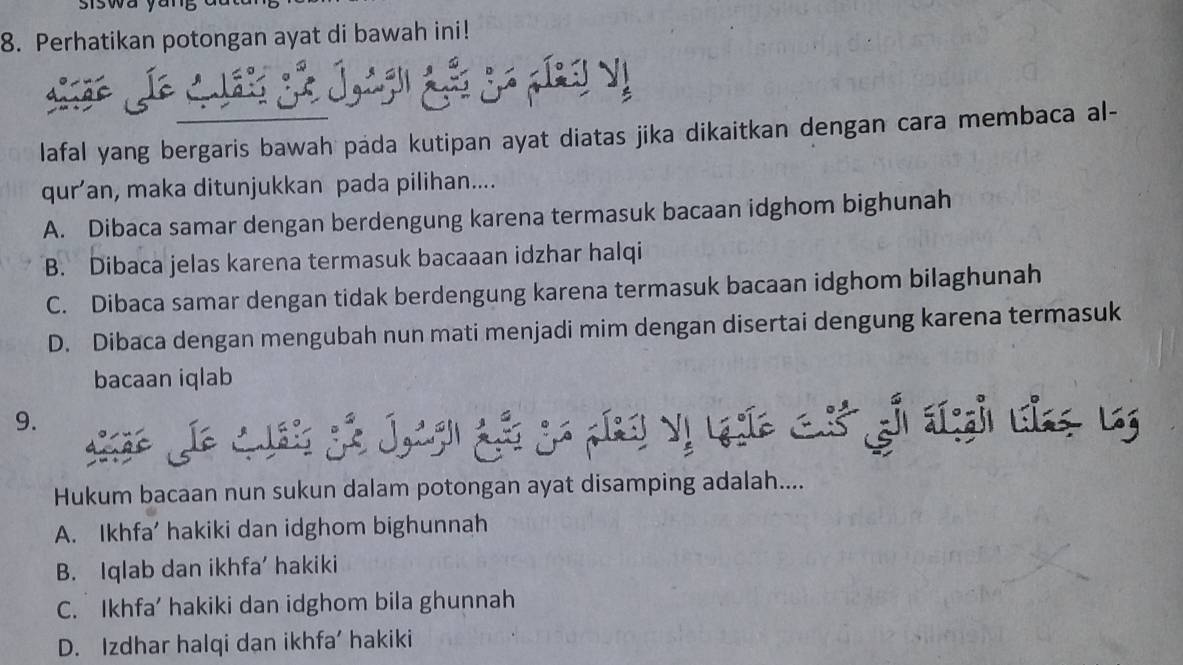 8. Perhatikan potongan ayat di bawah ini!
إِلَّا لِنَعْلَمَ مَنْ يَتَّبِعُ الرَّسُولَ مِمَّنْ يَنْقَلِبُ عَلَىٰ عَقِبَيْهِ
lafal yang bergaris bawah pada kutipan ayat diatas jika dikaitkan dengan cara membaca al-
qur'an, maka ditunjukkan pada pilihan....
A. Dibaca samar dengan berdengung karena termasuk bacaan idghom bighunah
B. Dibaca jelas karena termasuk bacaaan idzhar halqi
C. Dibaca samar dengan tidak berdengung karena termasuk bacaan idghom bilaghunah
D. Dibaca dengan mengubah nun mati menjadi mim dengan disertai dengung karena termasuk
bacaan iqlab
9. وَمَا جَعَلْنَا الْقِبْلَةَ الَّتِي كُنْتَ عَلَيْهَا إِلَّا لِنَعْلَمَ مَنْ يَتَّبِعُ الرَّسُولَ مِمَّنْ يَنْقَلِبُ عَلَىٰ عَقِبَيْهِ
Hukum bacaan nun sukun dalam potongan ayat disamping adalah....
A. Ikhfa' hakiki dan idghom bighunnah
B. Iqlab dan ikhfa' hakiki
C. Ikhfa' hakiki dan idghom bila ghunnah
D. Izdhar halqi dan ikhfa' hakiki